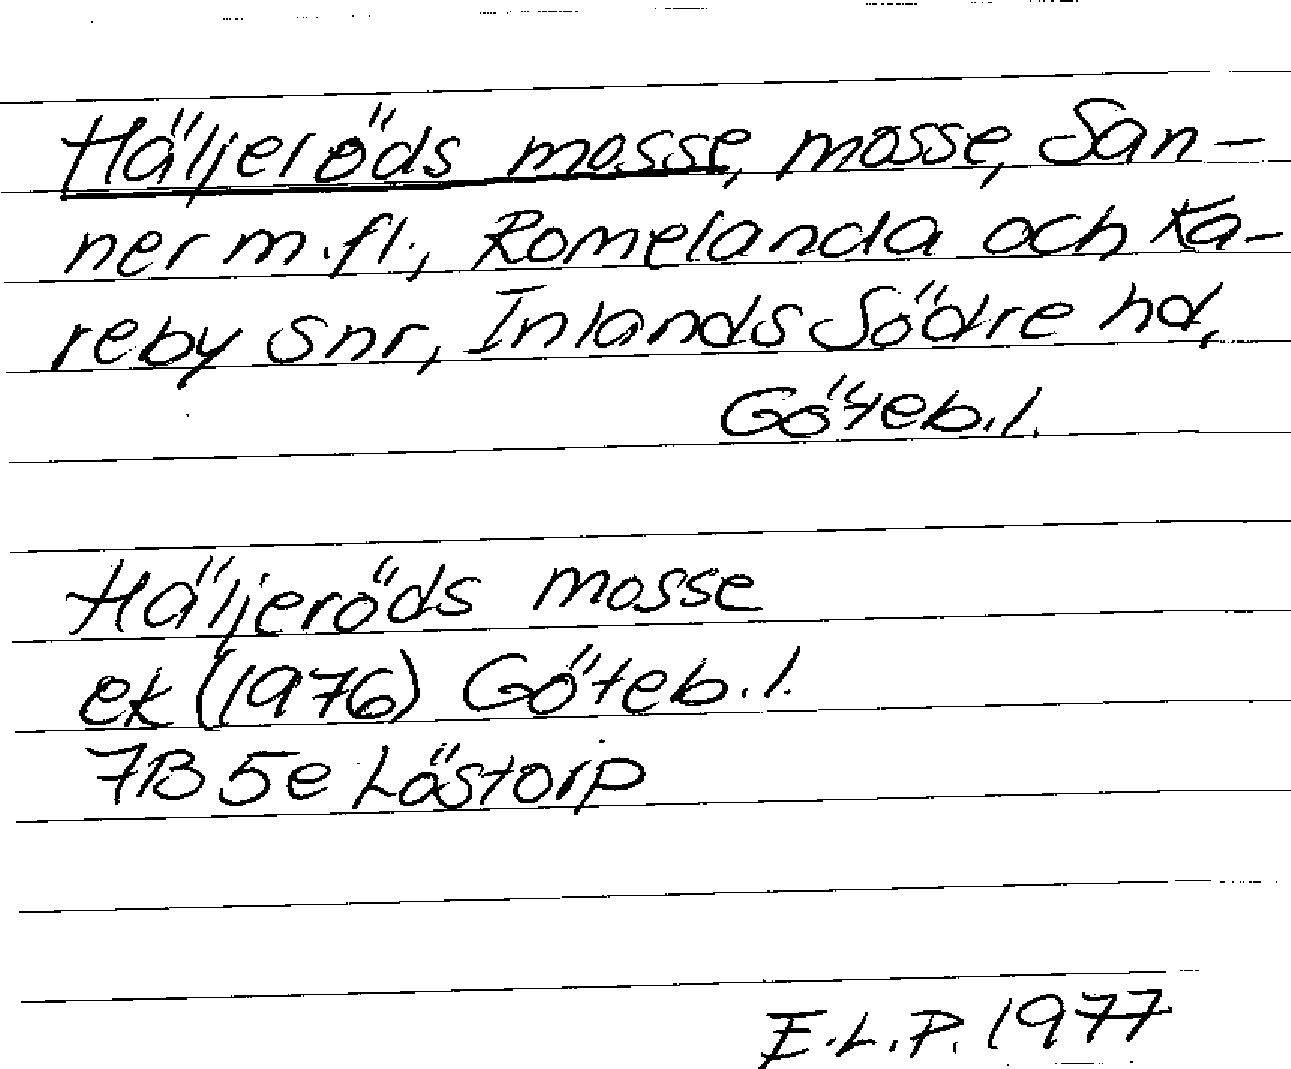 Häljeröds mosse, mosse, San-
ner m.fl., Romelanda och Ka-
reby snr, Inlands Södre hd,
Göteb.l.
Häljeröds mosse
ek (1976) Göteb.l.
7B 5e Lästorp
E.L.P. 1977